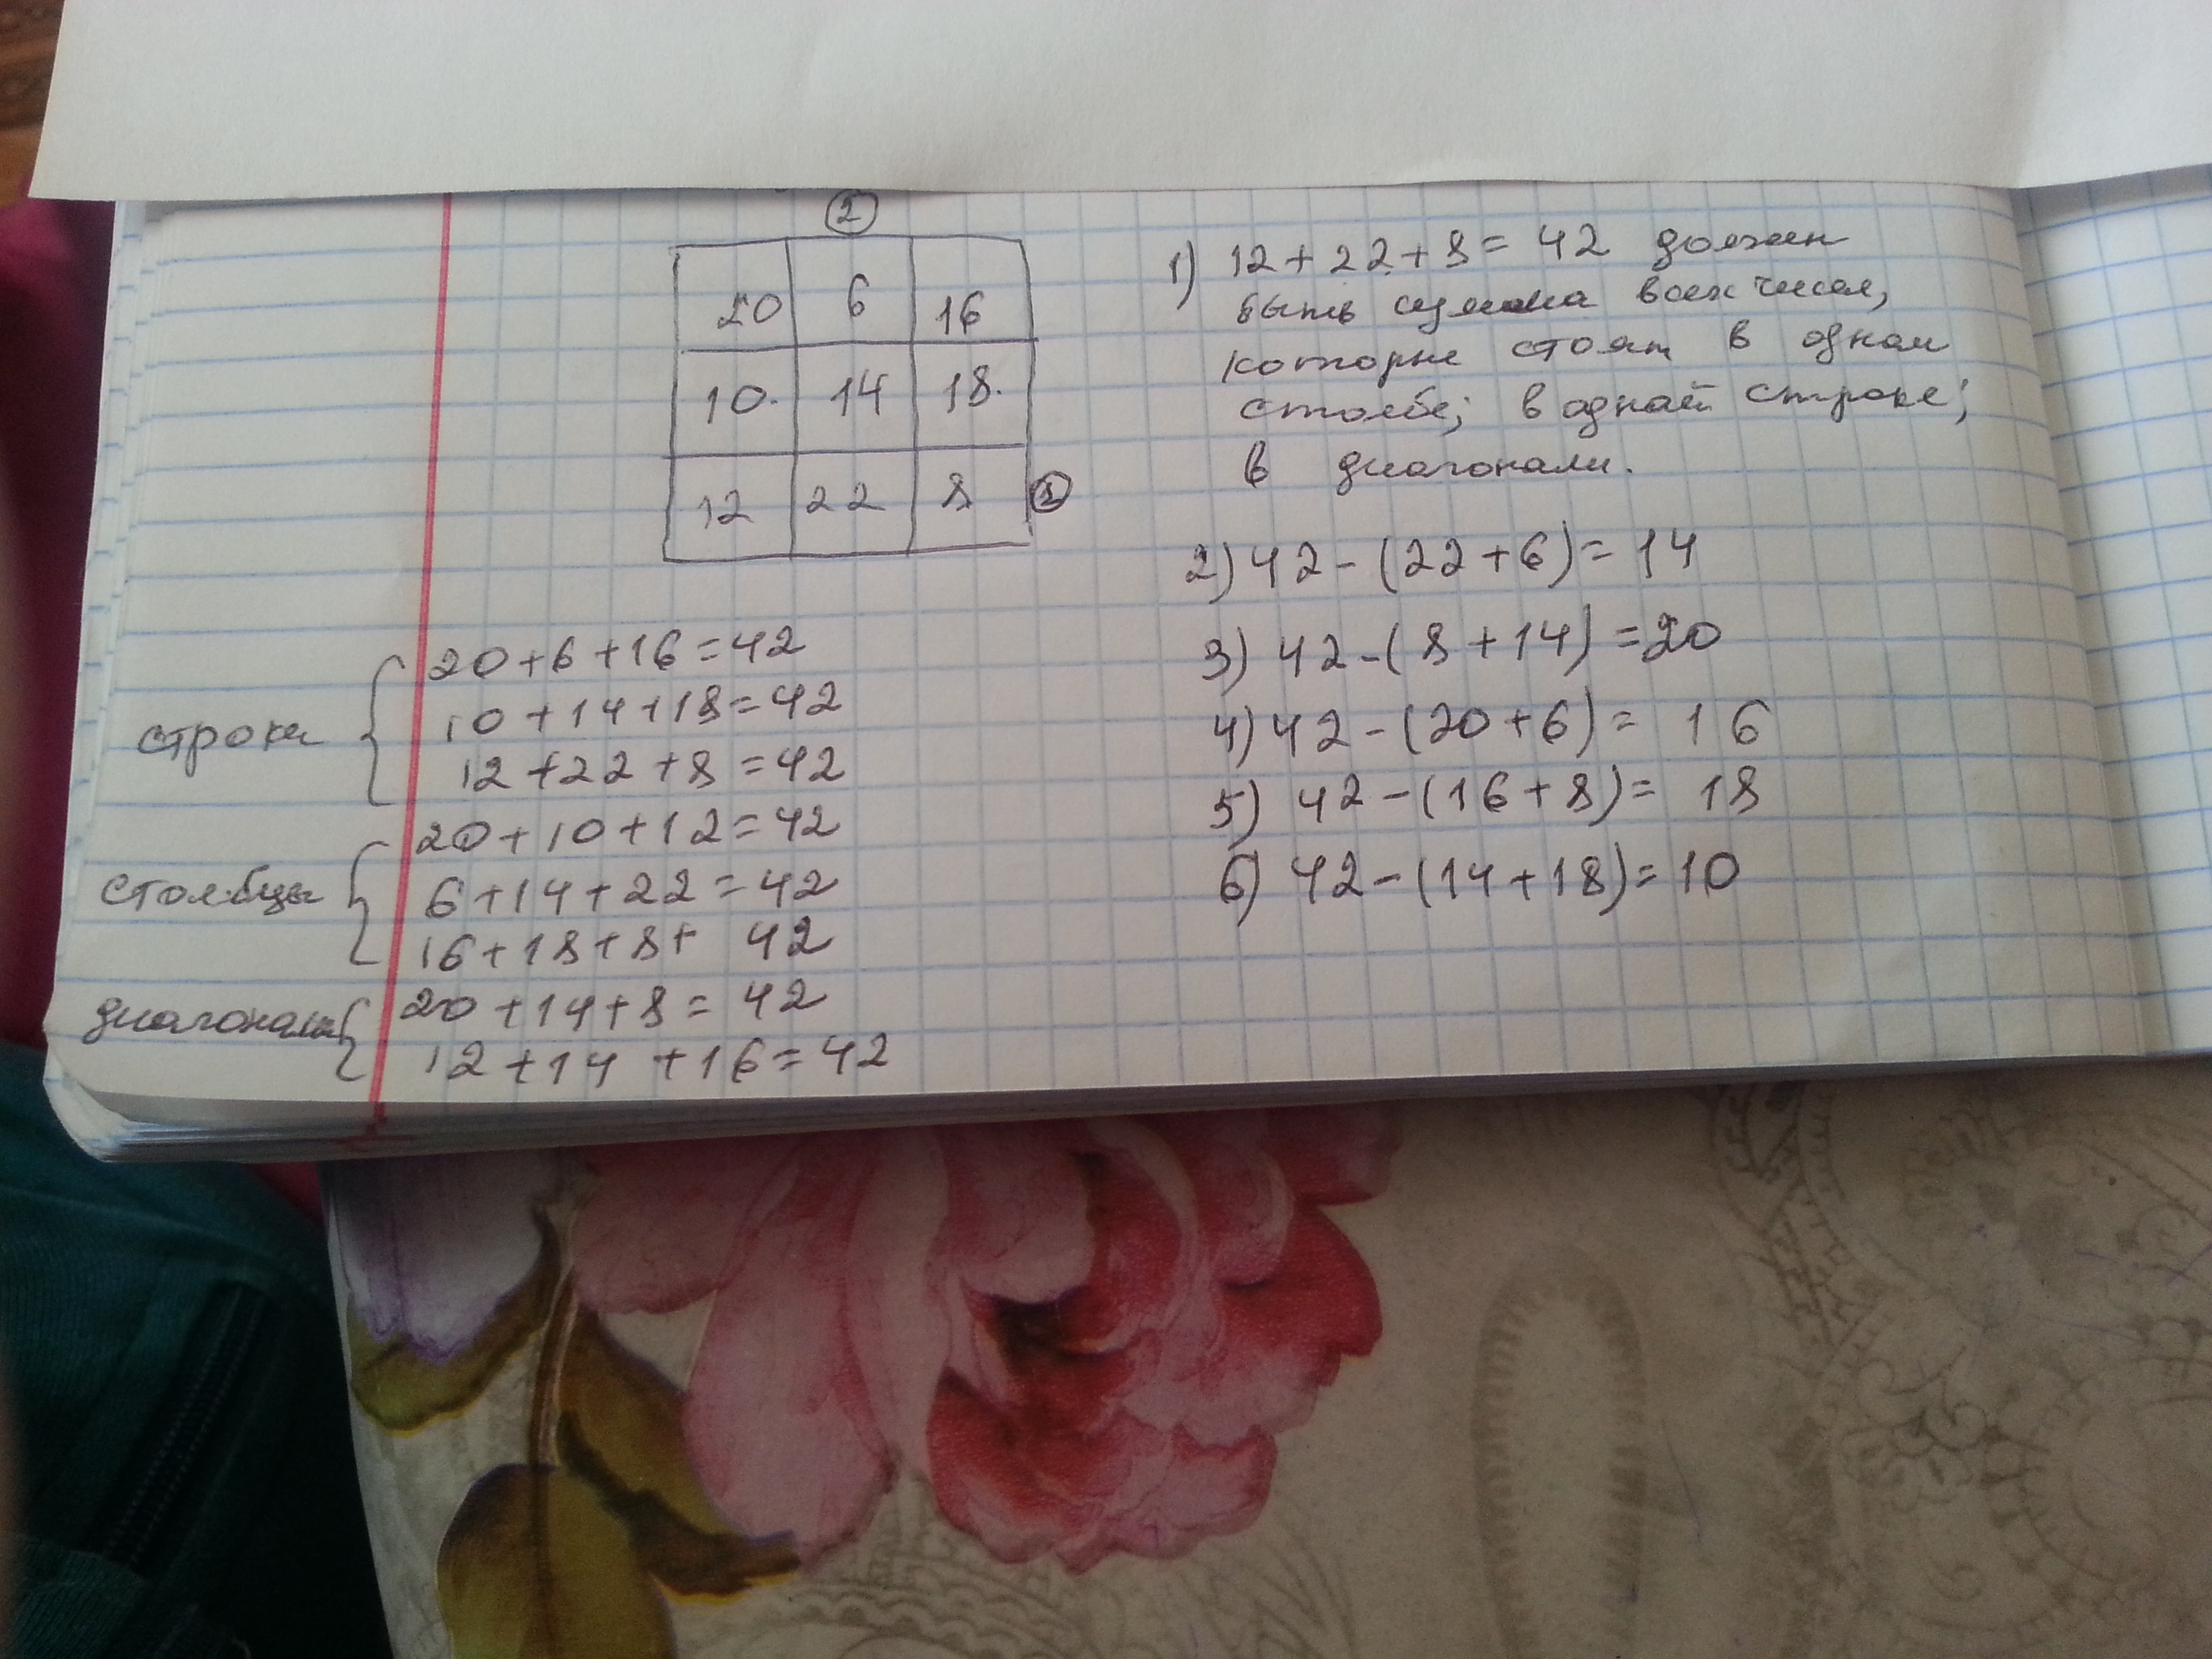 ②
20 6 16
10. 14 18.
12 22 8 ①
1) 12+22+8=42 должен
быть сумма всех чисел,
которые стоят в одном
столбе; в одной строке;
в диагонали.
2) 42-(22+6)=14
3) 42-(8+14)=20
4) 42-(20+6)=16
5) 42-(16+8)=18
6) 42-(14+18)=10
строки
20+6+16=42
10+14+18=42
12+22+8=42
столбцы
20+10+12=42
6+14+22=42
16+18+8+ 42
диагонали
20+14+8=42
12+14+16=42